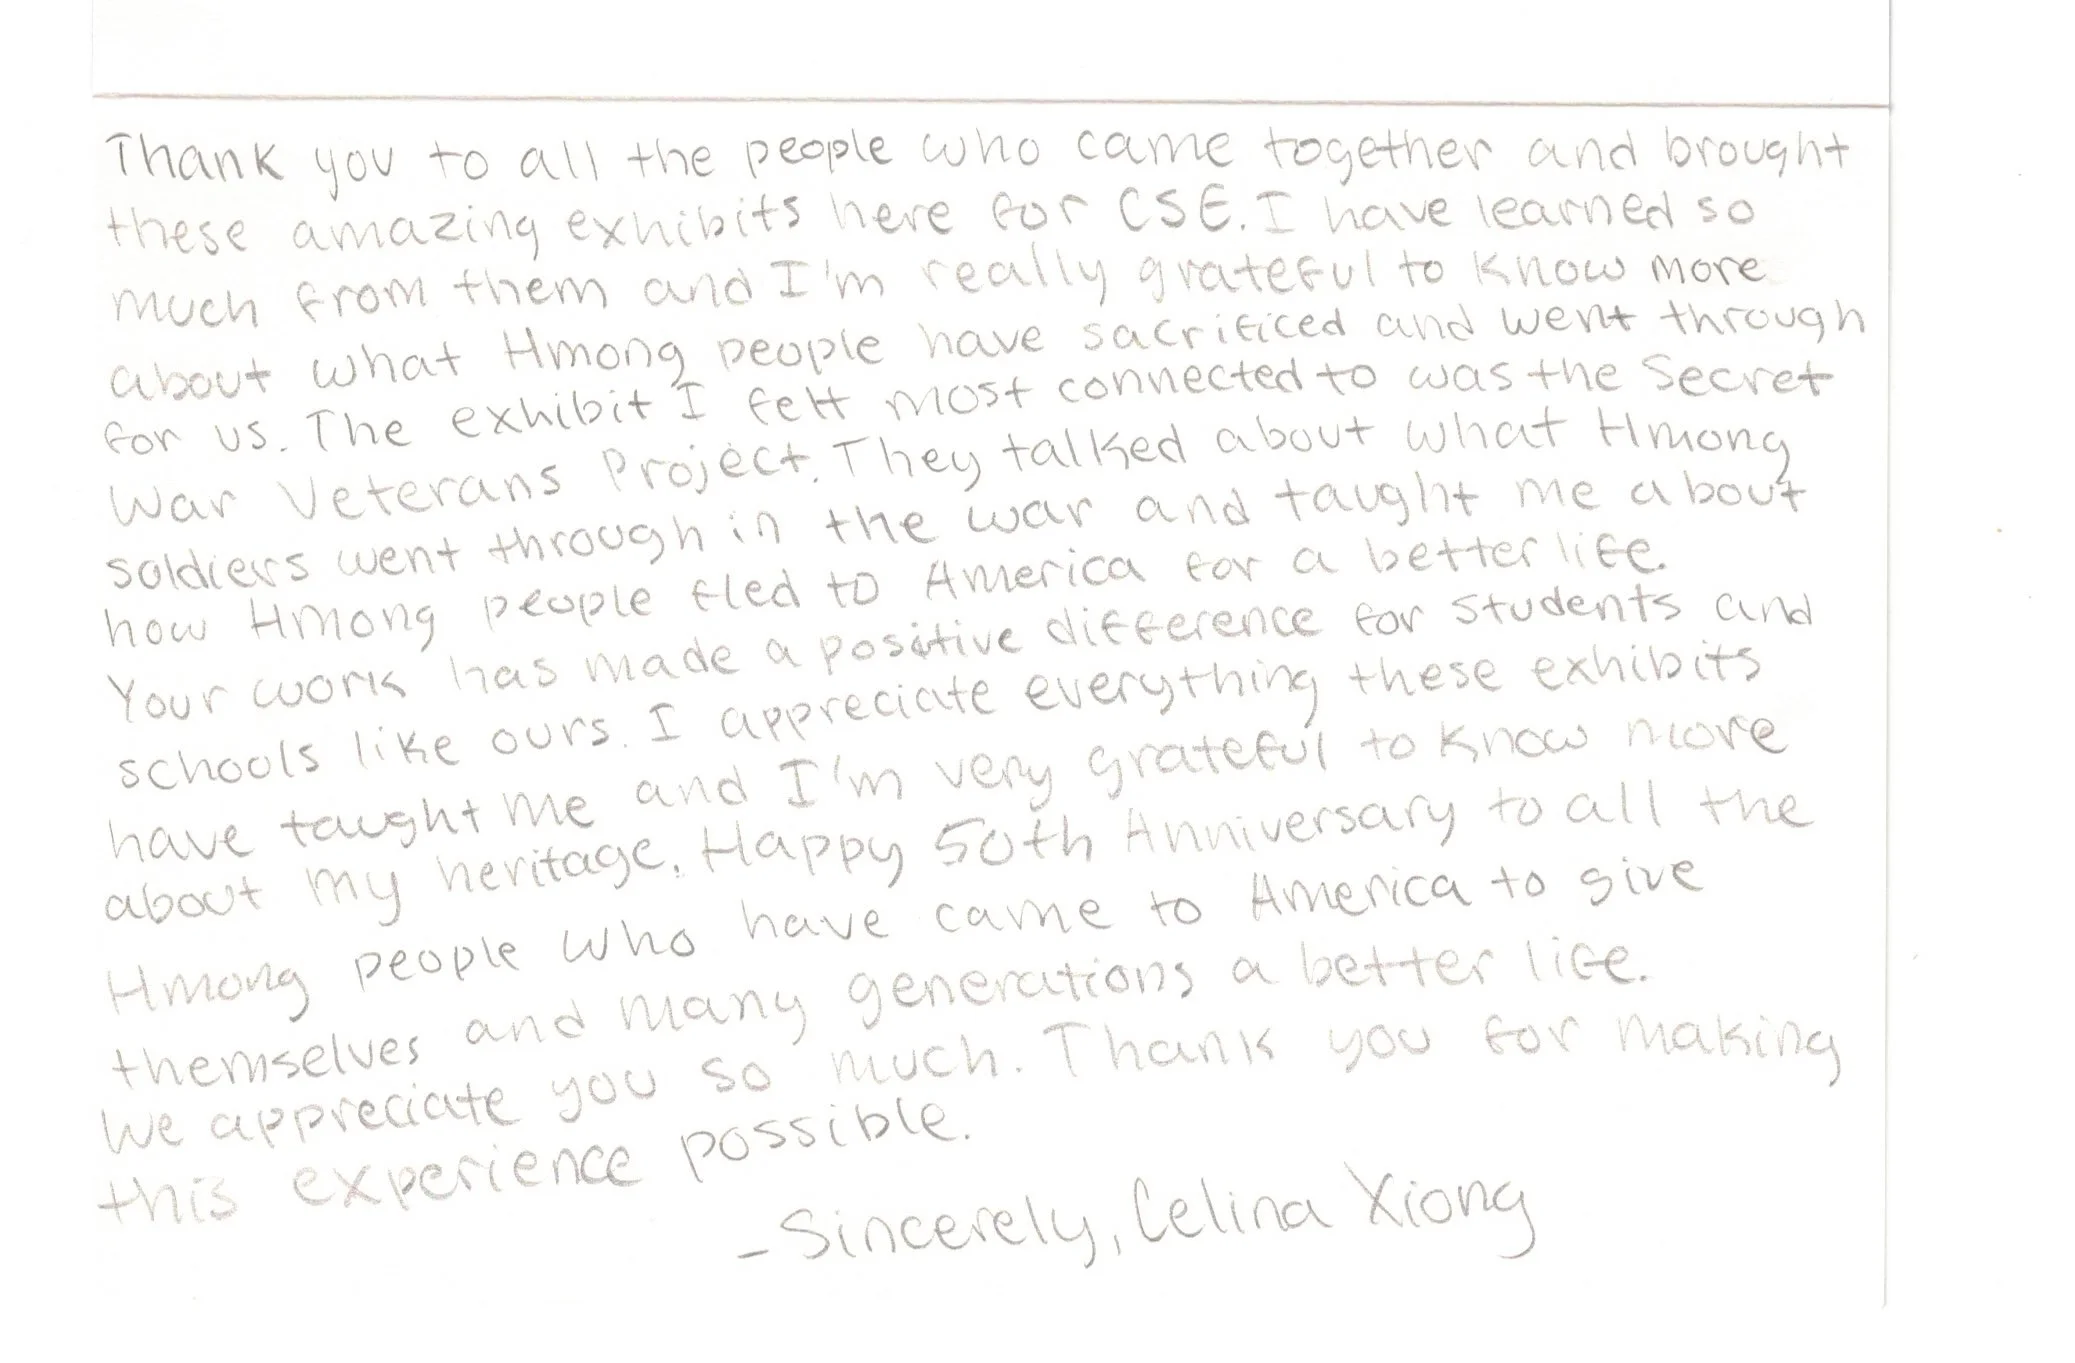 Thank you to all the people who came together and brought
these amazing exhibits here for CSE. I have learned so
much from them and I'm really grateful to know more
about what Hmong people have sacrificed and went through
for us. The exhibit I felt most connected to was the Secret
War Veterans Project. They talked about what Hmong
soldiers went through in the war and taught me about
how Hmong people fled to America for a better life.
Your work has made a positive difference for students and
schools like ours. I appreciate everything these exhibits
have taught me and I'm very grateful to know more
about my heritage. Happy 50th Anniversary to all the
Hmong people who have came to America to give
themselves and many generations a better life.
We appreciate you so much. Thank you for making
this experience possible.
- Sincerely, Celina Xiong